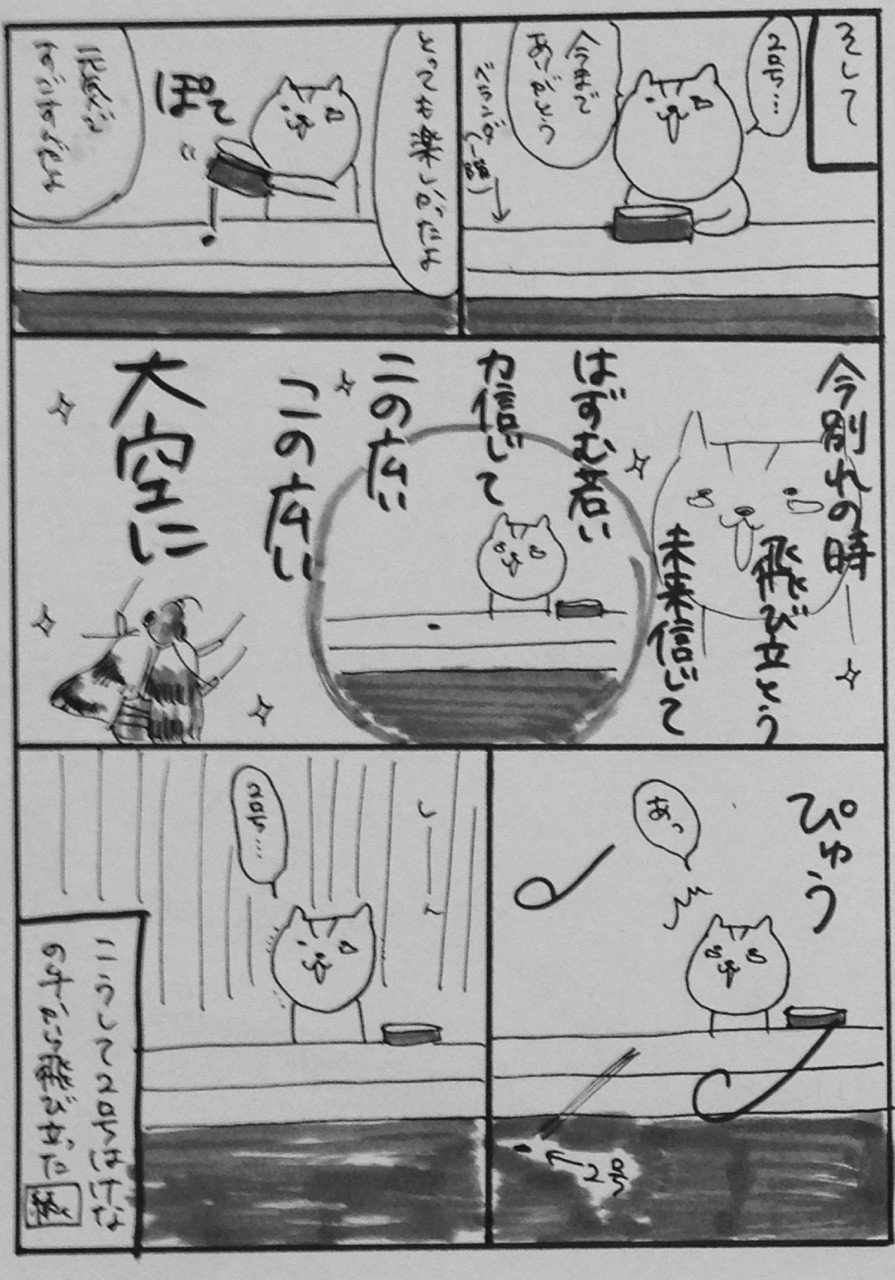 そして
2号…
今まで
ありがとう
ベランダ
とっても楽しかったよ
ぽて
今別れの時
飛び立とう
未来信じて
はずむ若い
力信じて
この広い
この広い
大空に
ぴゅう
あっ
2号
しーん
2号…
こうして2号はけな
の手から飛び立った
終